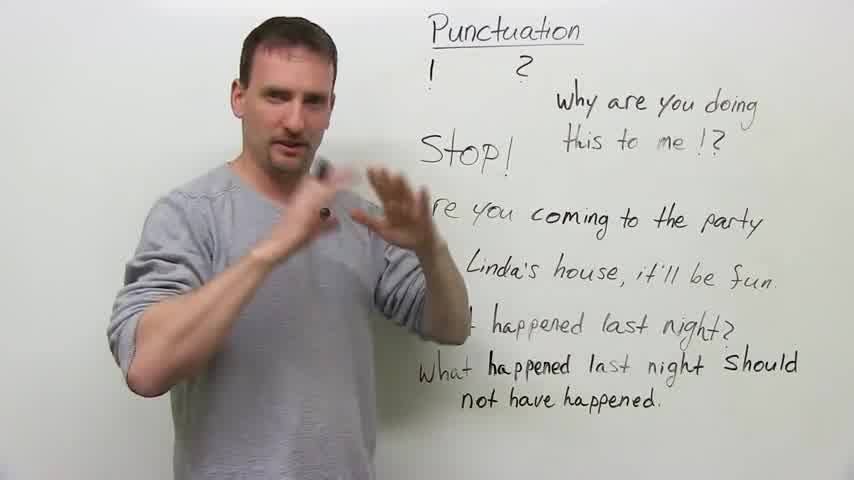 Punctuation
! ?
Why are you doing
this to me !?
Stop!
re you coming to the party
Linda's house, it'll be fun.
happened last night?
What happened last night should
not have happened.